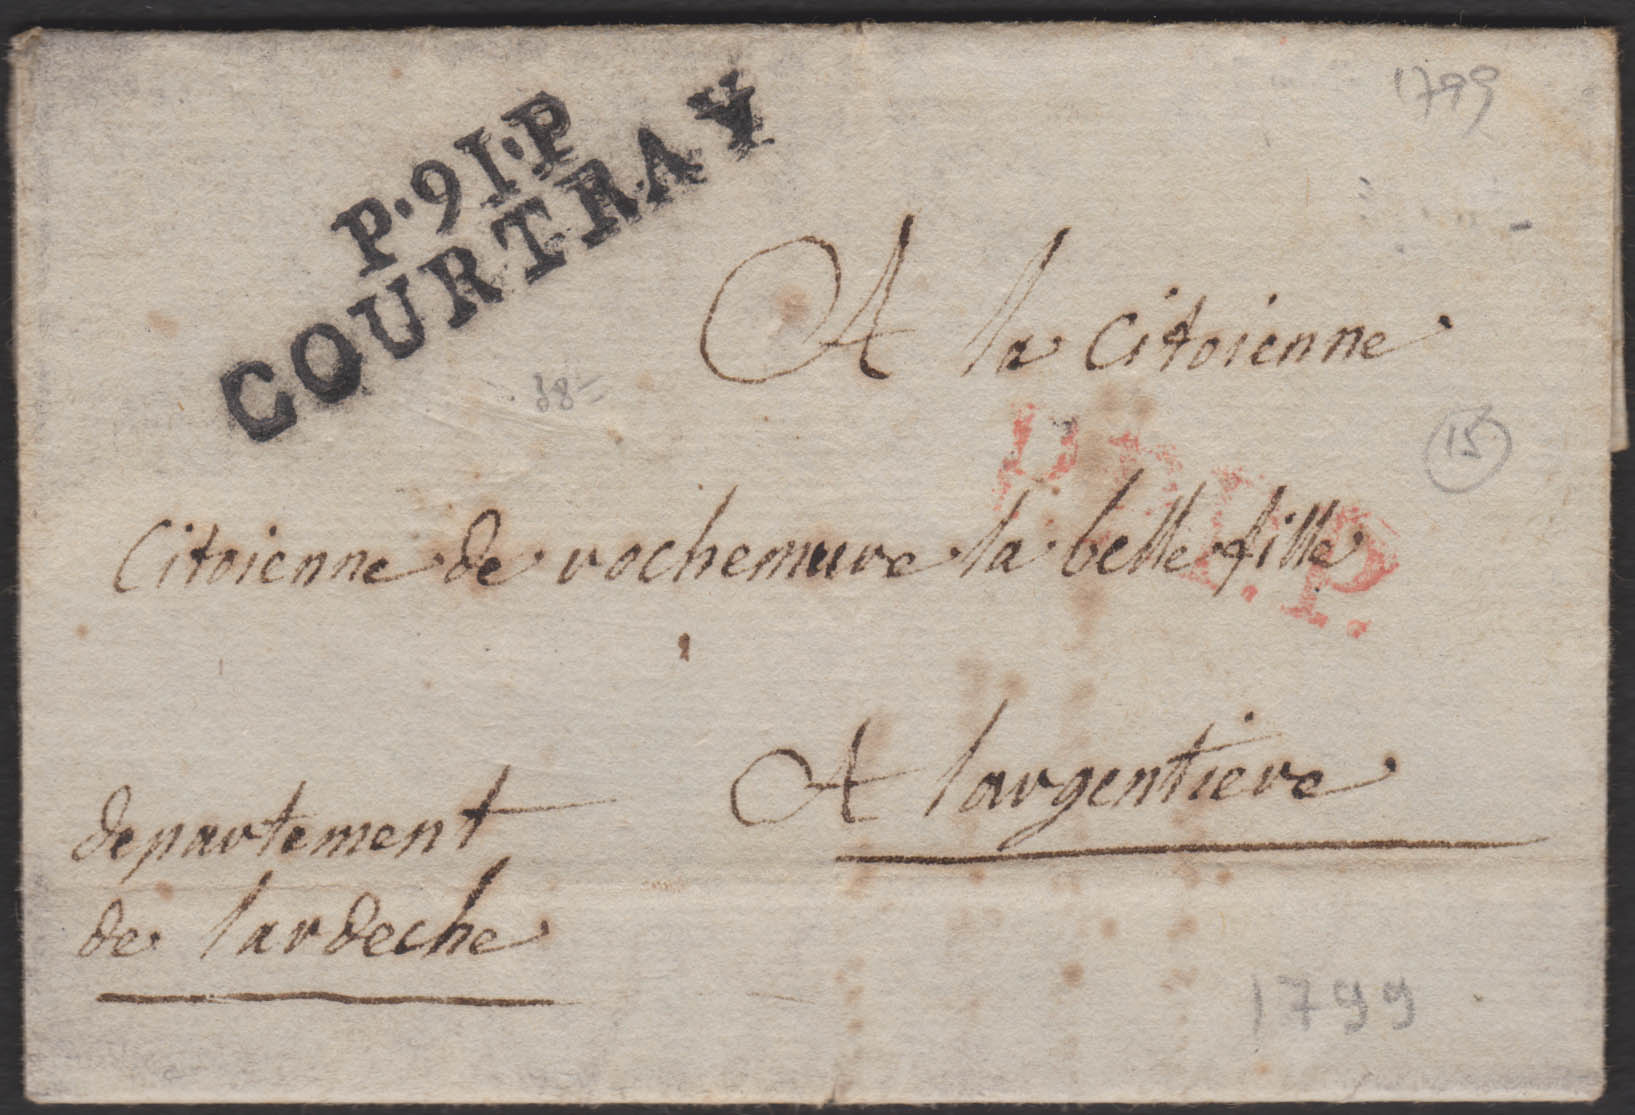 P·91·P
COURTRAY
1799
A la Citoienne
38
15
P.P.P.
Citoienne de rochemure la belle fille
A largentiere
departement
de lardeche
1799